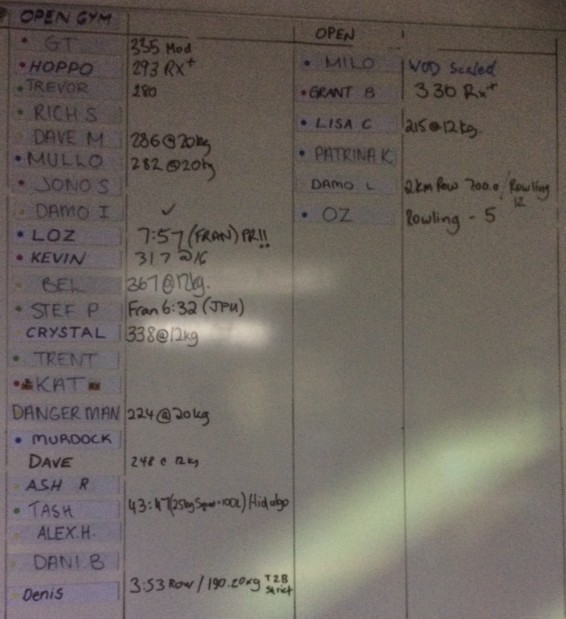 OPEN GYM
GT 335 Mod
HOPPO 293 RX+
TREVOR 280
RICH S
DAVE M 286@20kg
MULLO 282@20kg
JONO S
DAMO I ✓
LOZ 7:57 (FRAN) PR!!
KEVIN 317@16
BEL 367@12kg.
STEF P Fran 6:32 (JPU)
CRYSTAL 338@12kg
TRENT
KAT
DANGERMAN 224@20kg
MURDOCK
DAVE 248@12kg
ASH R
TASH 43:47 Hidalgo
ALEX.H.
DANI.B
Denis 3:53 Row / 190.20kg T2B Strict
OPEN
MILO WOD Scaled
GRANT B 330 Rx+
LISA C 215@12kg.
PATRINA K
DAMO L 2km Row 700.0/Rowling 12
OZ Rowling - 5